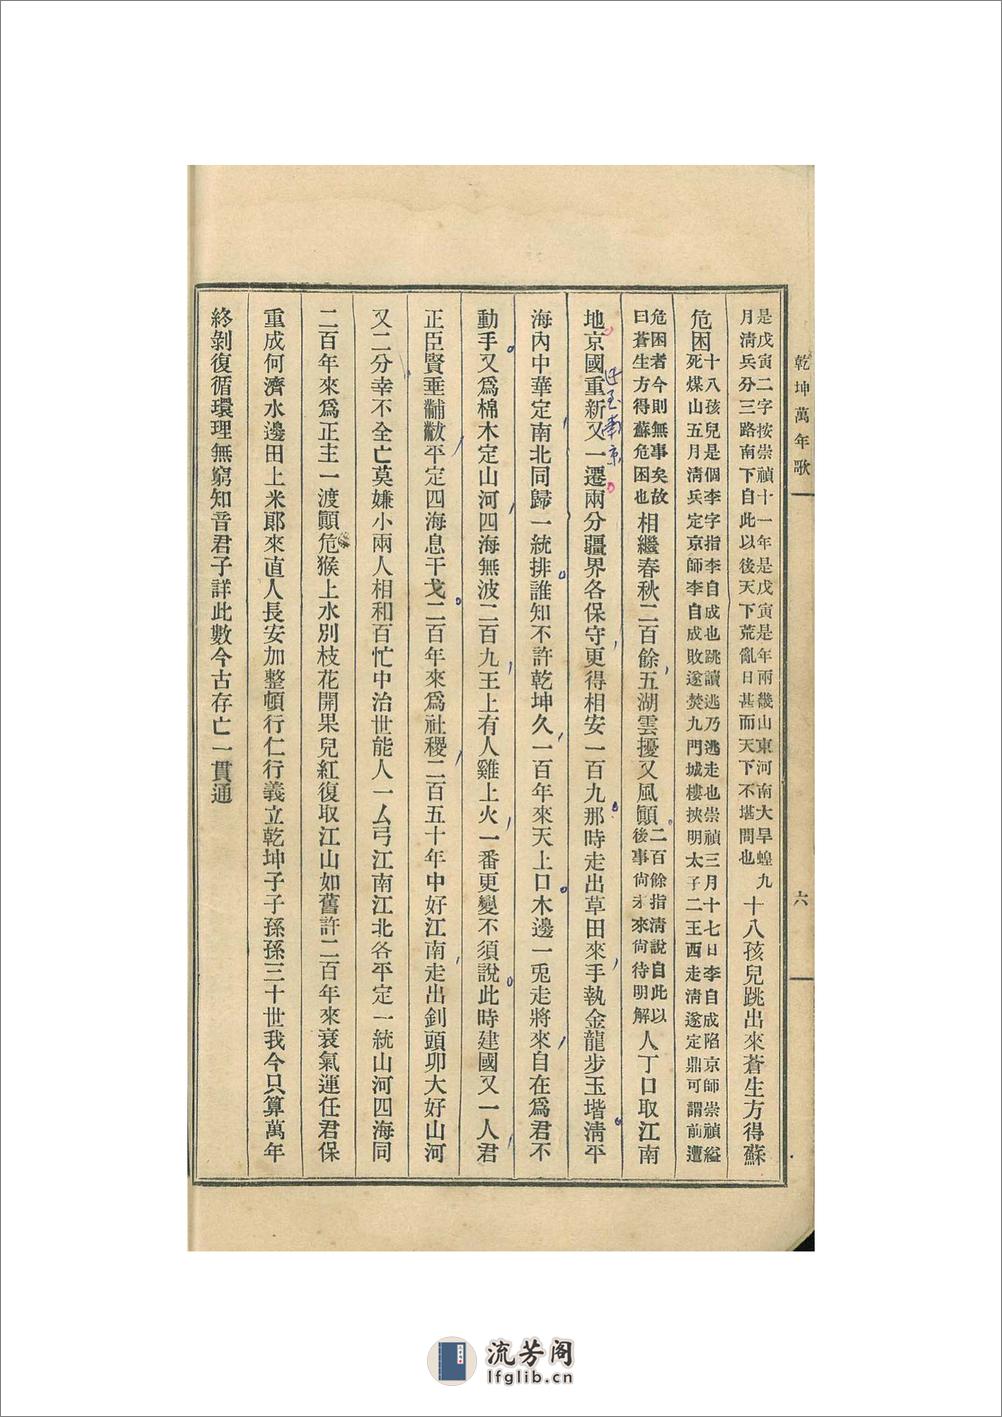 乾坤萬年歌
六
是戊寅二字按崇禎十一年是戊寅是年兩畿山東河南大旱蝗九
月淸兵分三路南下自此以後天下荒亂日甚而天下不堪問也
十八孩兒跳出來蒼生方得蘇
危困
十八孩兒是個李字指李自成也跳讀逃乃逃走也崇禎三月十七日李自成陷京師崇禎縊
死煤山五月淸兵定京師李自成敗遂焚九門城樓挾明太子二王西走淸遂定鼎可謂前遭
危困者今則無事矣故
曰蒼生方得蘇危困也
相繼春秋二百餘五湖雲擾又風顚
二百餘指淸說自此以
後事尙未來尙待明解
人丁口取江南
地京國重新又一遷兩分疆界各保守更得相安一百九那時走出草田來手執金龍步玉堦淸平
迁至南京
海內中華定南北同歸一統排誰知不許乾坤久一百年來天上口木邊一兎走將來自在爲君不
動手又爲棉木定山河四海無波二百九王上有人雞上火一番更變不須說此時建國又一人君
正臣賢垂黼黻平定四海息干戈二百年來爲社稷二百五十年中好江南走出釗頭卯大好山河
又二分幸不全亡莫嫌小兩人相和百忙中治世能人一厶弓江南江北各平定一統山河四海同
二百年來爲正主一渡顚危猴上水別枝花開果兒紅復取江山如舊許二百年來衰氣運任君保
重成何濟水邊田上米郞來直人長安加整頓行仁行義立乾坤子子孫孫三十世我今只算萬年
終剝復循環理無窮知音君子詳此數今古存亡一貫通
流芳阁
lfglib.cn